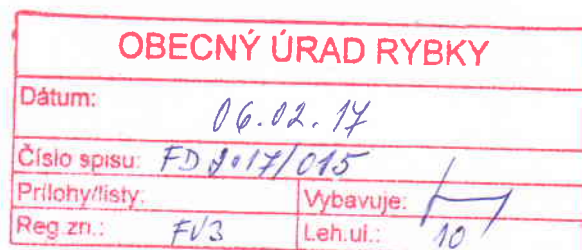 OBECNÝ ÚRAD RYBKY
Dátum: 06.02.17
Číslo spisu: FD 2017/015
Prílohy/listy: Vybavuje:
Reg.zn.: FV3 Leh.ul.: 10